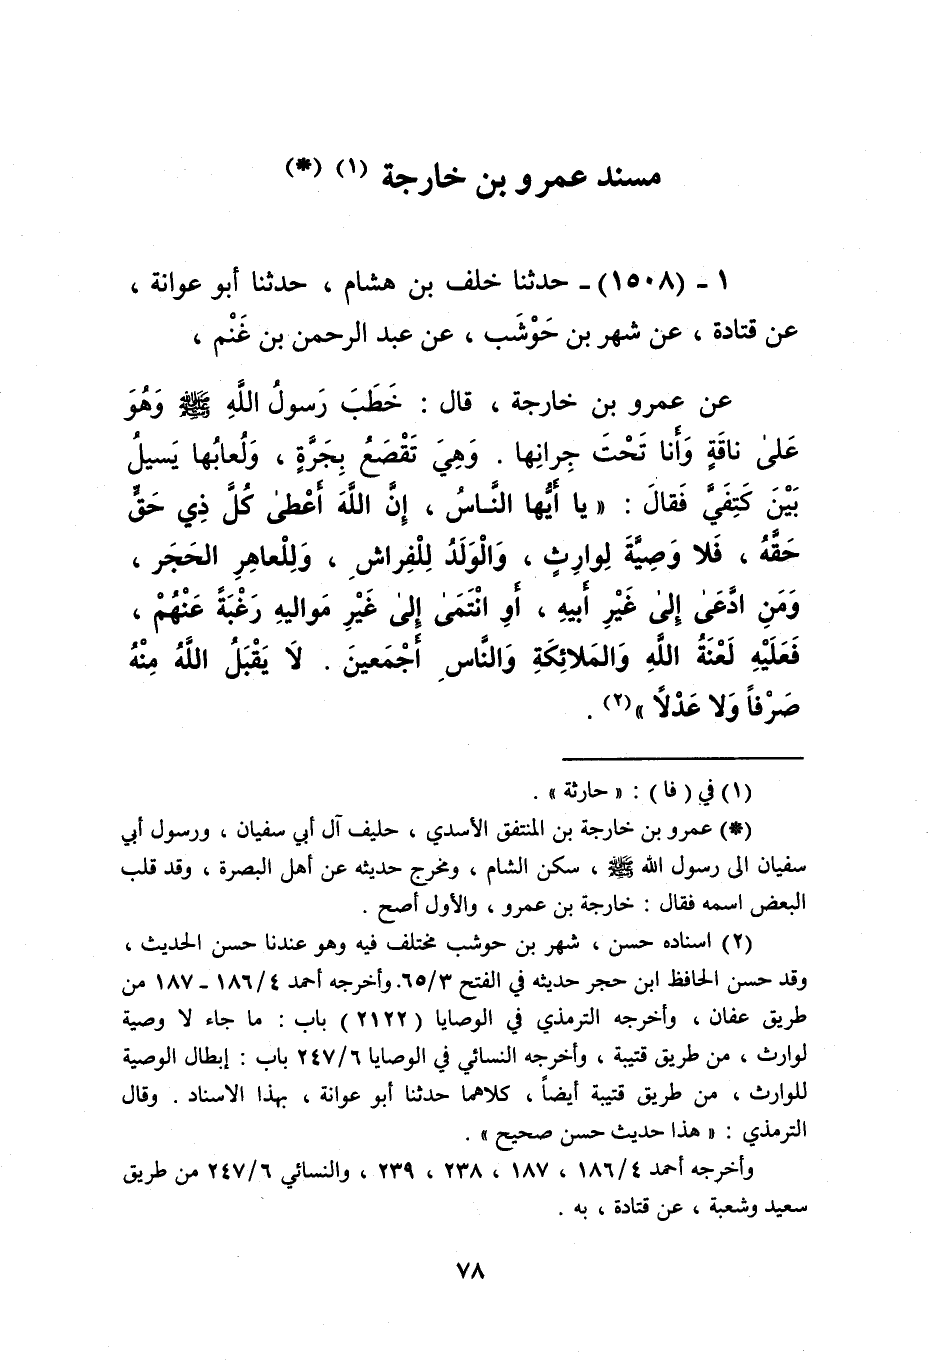 مسند عمرو بن خارجة (١) (*)
١ - (١٥٠٨) - حدثنا خلف بن هشام ، حدثنا أبو عوانة ،
عن قتادة ، عن شهر بن حَوْشَب ، عن عبد الرحمن بن غَنْم ،
عن عمرو بن خارجة ، قال : خَطَبَ رَسولُ اللَّهِ ﷺ وَهُوَ
عَلىٰ ناقَةٍ وَأَنا تَحْتَ جِرانِها . وَهِيَ تَقْصَعُ بِجَرَّةٍ ، وَلُعابُها يَسيلُ
بَيْنَ كَتِفَيَّ فَقالَ : « يا أَيُّها النَّاسُ ، إِنَّ اللَّهَ أَعْطىٰ كُلَّ ذِي حَقٍّ
حَقَّهُ ، فَلا وَصِيَّةَ لِوارِثٍ ، وَالْوَلَدُ لِلْفِراشِ ، وَلِلْعاهِرِ الحَجَر ،
وَمَنِ ادَّعَىٰ إِلىٰ غَيْرِ أَبيهِ ، أَوِ انْتَمَىٰ إِلىٰ غَيْرِ مَواليهِ رَغْبَةً عَنْهُمْ ،
فَعَلَيْهِ لَعْنَةُ اللَّهِ وَالمَلائِكَةِ وَالنَّاسِ أَجْمَعينَ . لَا يَقْبَلُ اللَّهُ مِنْهُ
صَرْفاً وَلا عَدْلًا »(٢) .
(١) في ( فا ) : « حارثة » .
(*) عمرو بن خارجة بن المنتفق الأسدي ، حليف آل أبي سفيان ، ورسول أبي
سفيان الى رسول الله ﷺ ، سكن الشام ، ومخرج حديثه عن أهل البصرة ، وقد قلب
البعض اسمه فقال : خارجة بن عمرو ، والأول أصح .
(٢) اسناده حسن ، شهر بن حوشب مختلف فيه وهو عندنا حسن الحديث ،
وقد حسن الحافظ ابن حجر حديثه في الفتح ٦٥/٣. وأخرجه أحمد ١٨٦/٤ - ١٨٧ من
طريق عفان ، وأخرجه الترمذي في الوصايا ( ٢١٢٢ ) باب : ما جاء لا وصية
لوارث ، من طريق قتيبة ، وأخرجه النسائي في الوصايا ٢٤٧/٦ باب : إبطال الوصية
للوارث ، من طريق قتيبة أيضاً ، كلاهما حدثنا أبو عوانة ، بهذا الاسناد . وقال
الترمذي : « هذا حديث حسن صحيح » .
وأخرجه أحمد ١٨٦/٤ ، ١٨٧ ، ٢٣٨ ، ٢٣٩ ، والنسائي ٢٤٧/٦ من طريق
سعيد وشعبة ، عن قتادة ، به .
٧٨